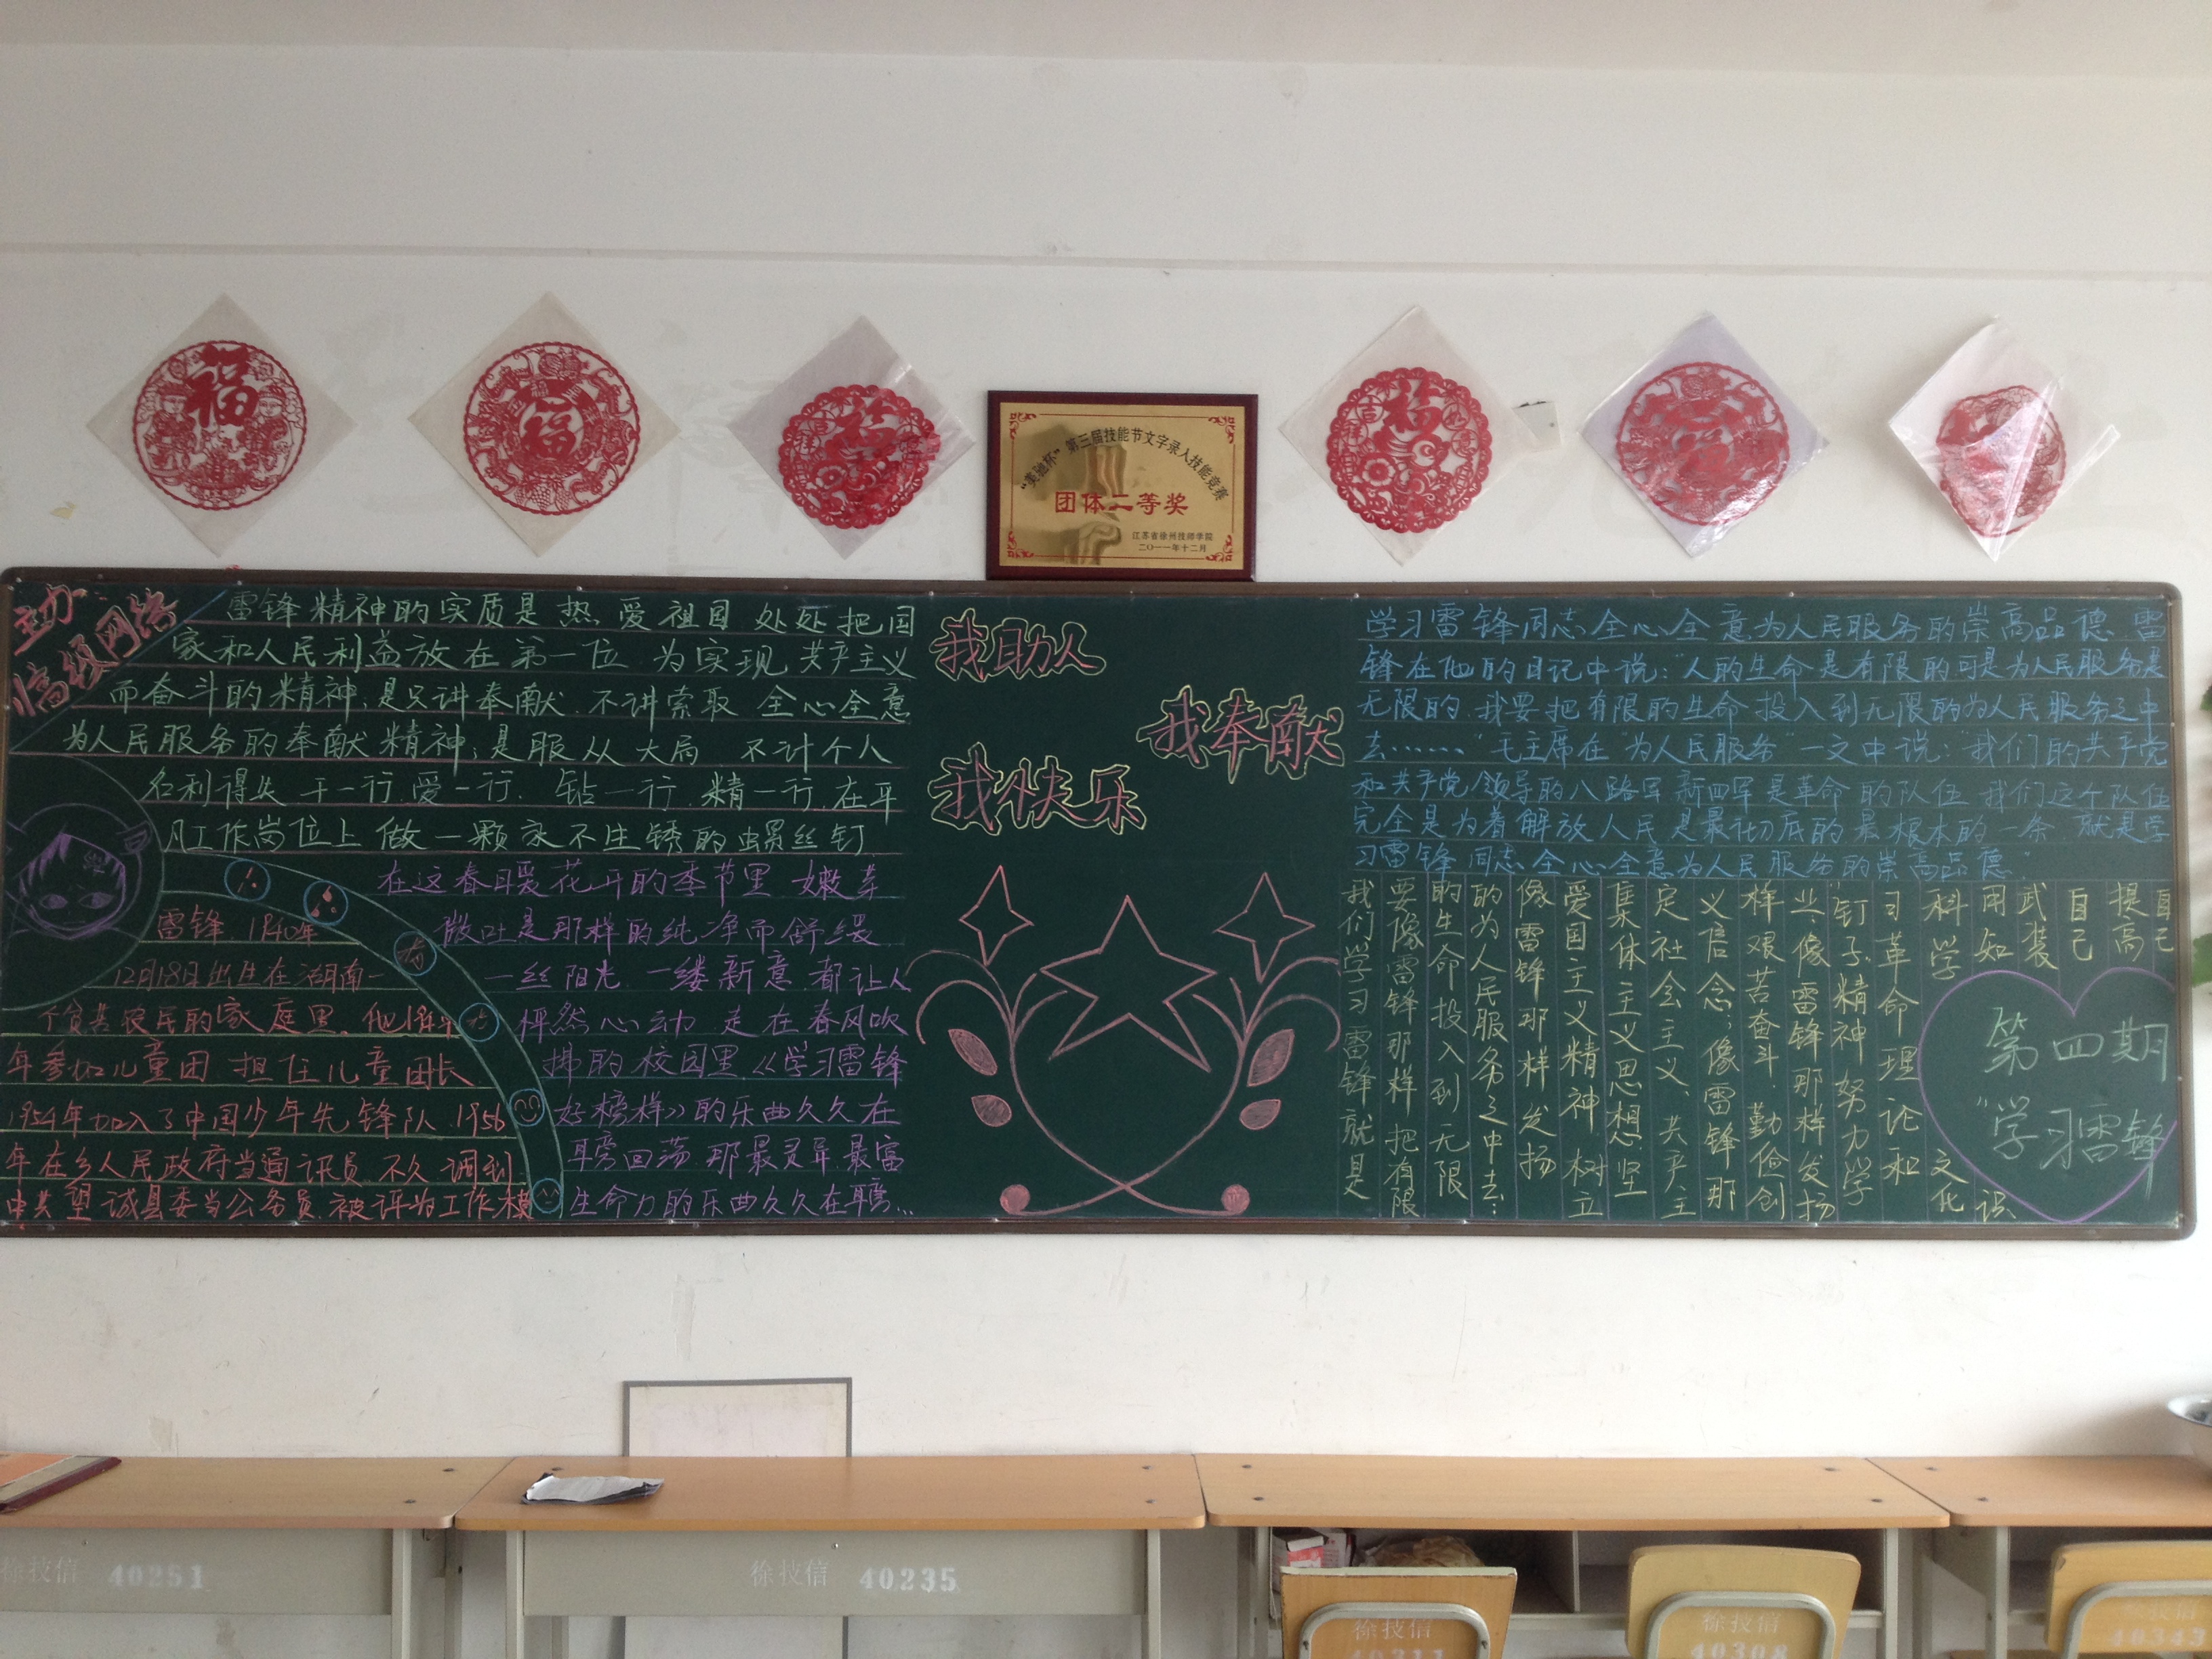 福
福
福
福
福
"美驰杯"第三届技能节文字录入技能竞赛
团体二等奖
江苏省徐州技师学院
二〇一一年十二月
主办:
高级网络
雷锋精神的实质是热爱祖国处处把国
家和人民利益放在第一位.为实现共产主义
而奋斗的精神;是只讲奉献.不讲索取 全心全意
为人民服务的奉献精神;是服从大局 不计个人
名利得失 干一行.爱一行. 钻一行.精一行.在平
凡工作岗位上做一颗永不生锈的螺丝钉.
雷锋.1940年
12月18日出生在湖南一
个贫苦农民的家庭里.他
年参加儿童团 担任儿童团长
1954年加入了中国少年先锋队.1956
年在乡人民政府当通讯员.不久调到
中共望诚县委当公务员.被评为工作模
在这春暖花开的季节里 嫩芽
微吐是那样的纯净而舒缓.
一丝阳光.一缕新意.都让人
怦然心动 走在春风吹
拂的校园里《学习雷锋
好榜样》的乐曲久久在
耳旁回荡 那最灵异.最富
生命力的乐曲久久在耳旁...
我助人
我奉献
我快乐
学习雷锋同志全心全意为人民服务的崇高品德.雷
锋在他的日记中说:"人的生命是有限的可是为人民服务是
无限的.我要把有限的生命投入到无限的为人民服务之中
去……"毛主席在"为人民服务"一文中说:"我们的共产党
和共产党领导的八路军新四军是革命的队伍.我们这个队伍
完全是为着解放人民是最彻底的最根本的一条 就是学
习雷锋同志全心全意为人民服务的崇高品德."
我们学习雷锋就是
要像雷锋那样把有限
的生命投入到无限
的为人民服务之中去;
像雷锋那样发扬
爱国主义精神树立
集体主义思想.坚
定社会主义、共产主
义信念;像雷锋那
样艰苦奋斗.勤俭创
业.像雷锋那样发扬
"钉子"精神努力学
习革命理论和
科学文化
用知识
武装
自己
提高
自己
第四期
"学习雷锋
徐技信 40251
徐技信 40235
徐技信
40311
徐技信
40308
徐技信
40343